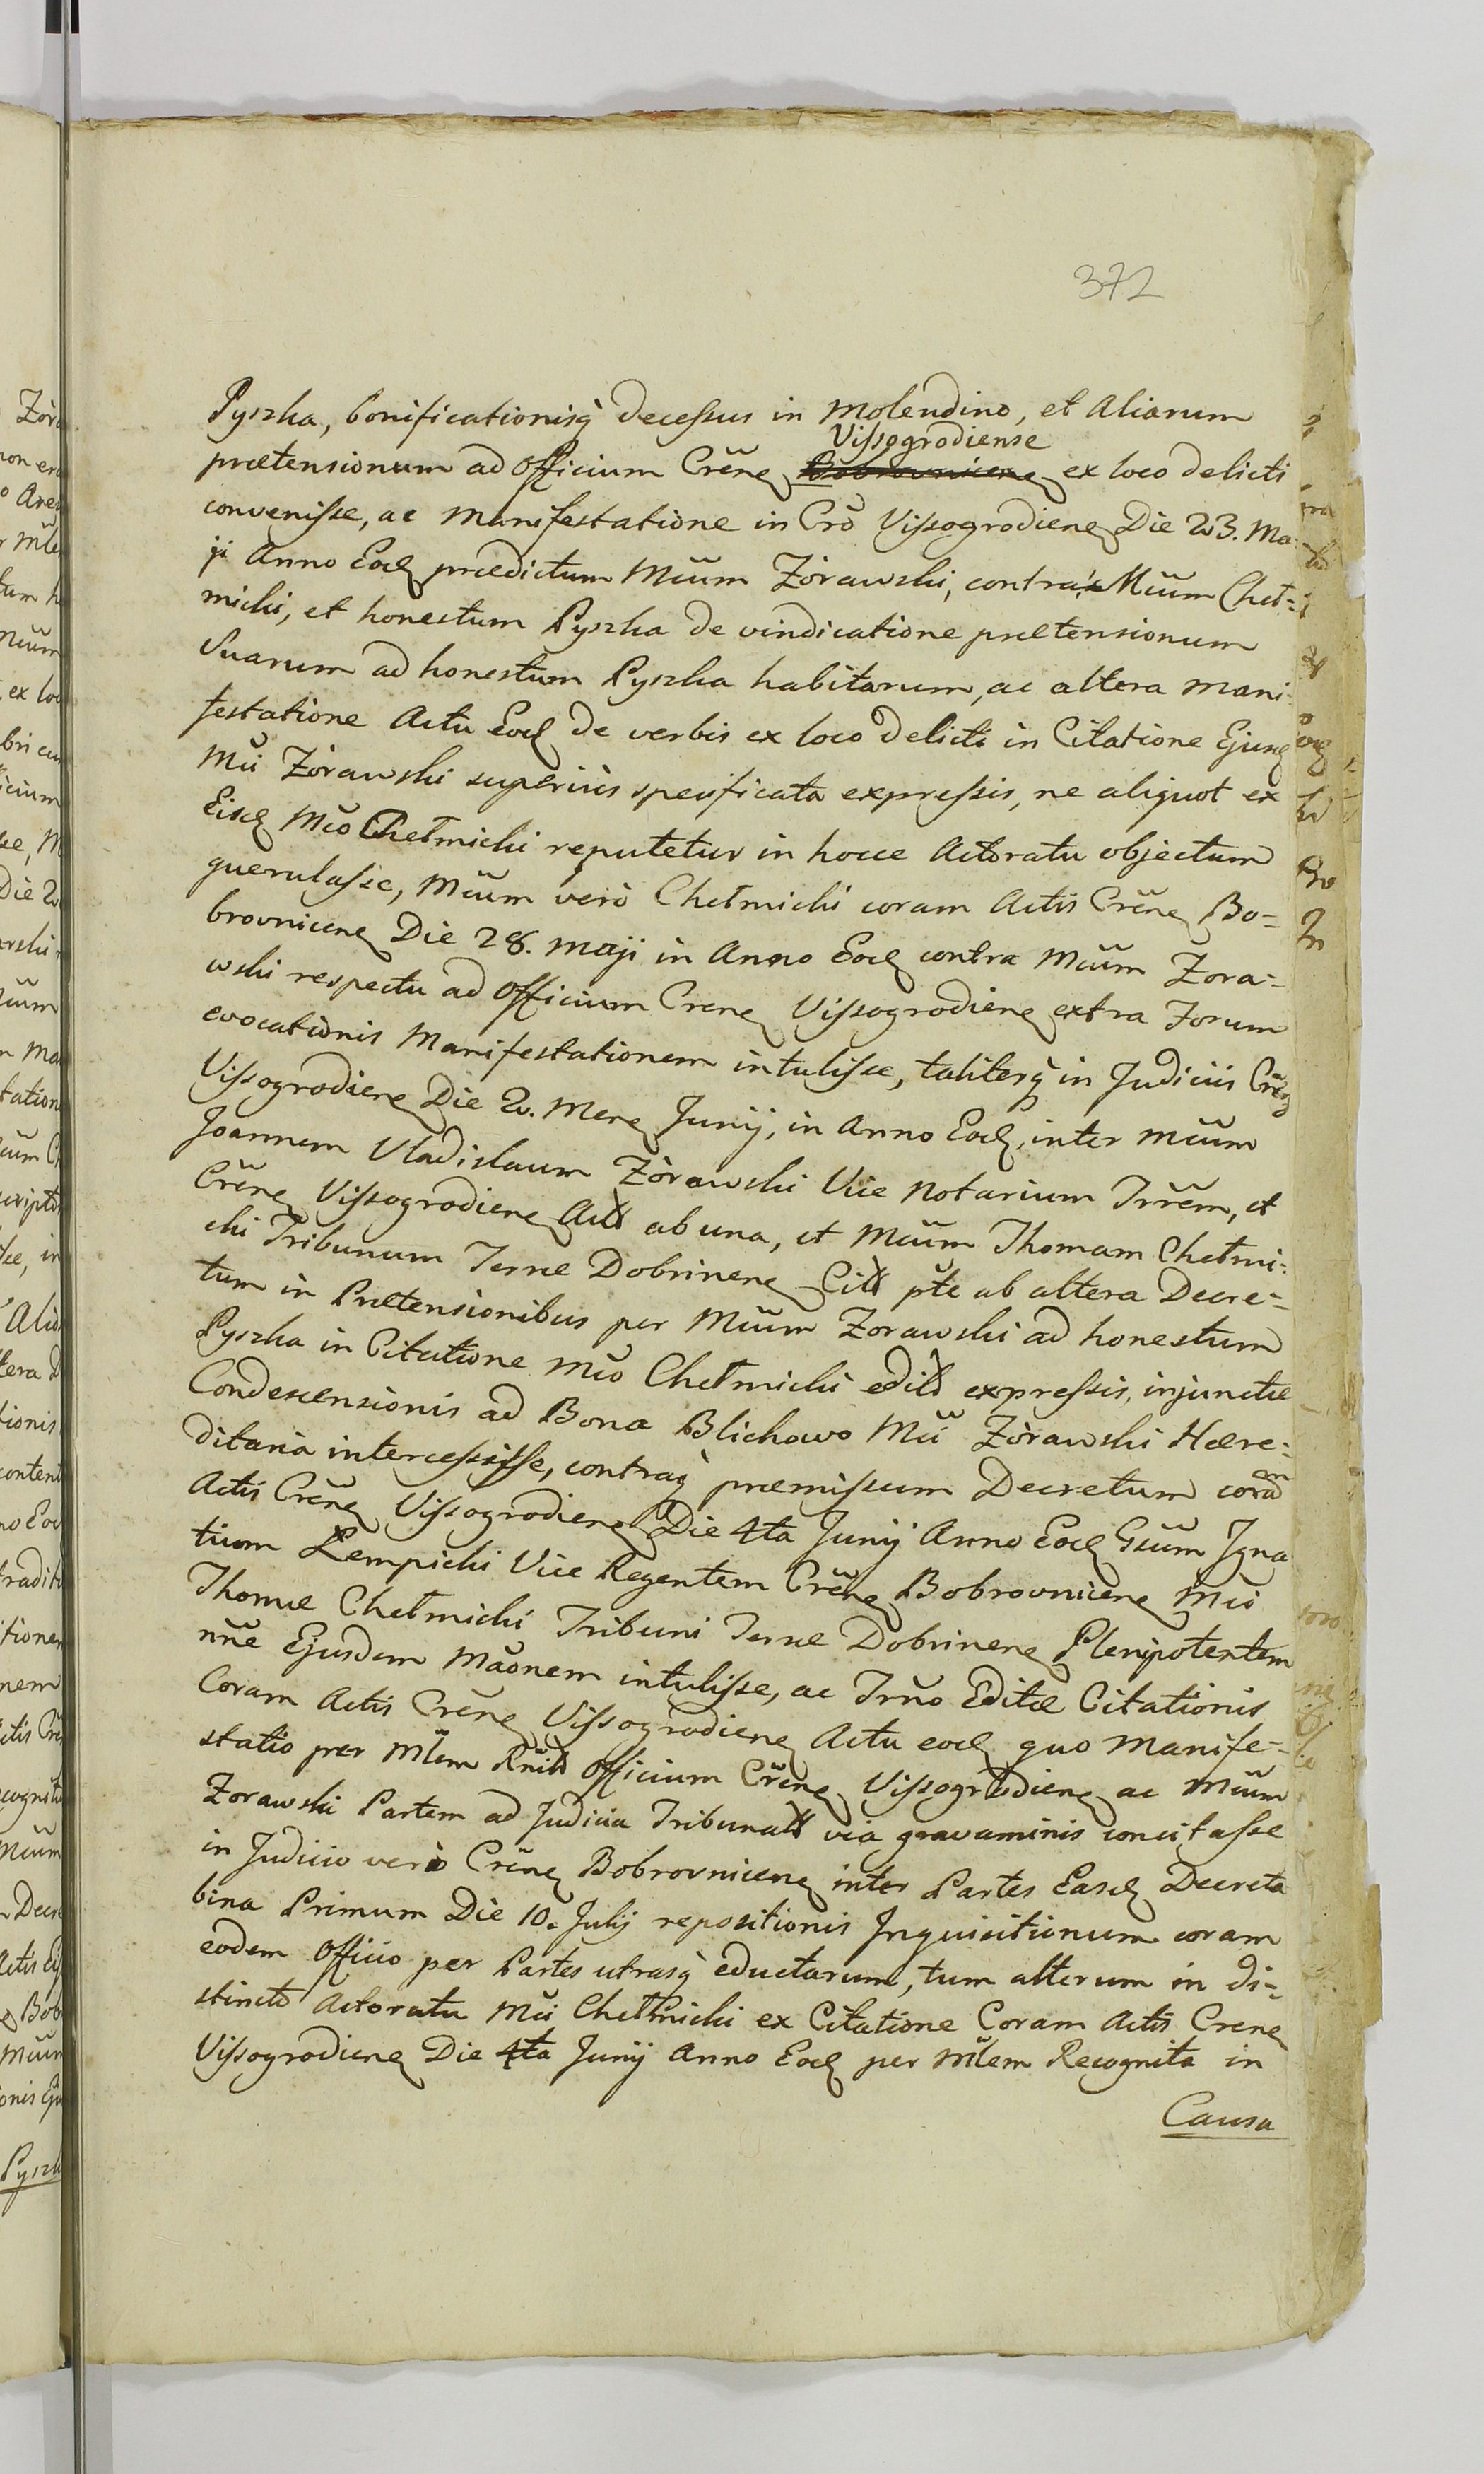 372
Pyszka, bonificationisq̀ decessus in Molendino, et Aliarum
Vissogrodiense
prætensionum ad Officium Crẽnɇ Bobrovnicenɇ ex loco delicti
convenisse, ac Manifestatione in Crõ Vissogrodienɇ Die 23. Ma-
ji Anno Eodɇ prædictum Mũum Żorawski, contra Mũum Cheł=
micki, et honestum Pyszka de vindicatione prætensionum
Suarum ad honestum Pyszka habitarum, ac altera Mani-
festatione Actu Eodɇ de verbis ex loco delicti in Citatione Ejusɇ
Mũi Żorawski superius specificata expressis, ne aliquot ex
Eisdɇ Mũo Chełmicki reputetur in hocce Actoratu objectum
querulasse, Mũum verò Chełmicki coram Actis Crẽnɇ Bo=
brovnicenɇ Die 28. Maji in Anno Eodɇ contra Mũum Zora=
wski respectu ad Officium Crenɇ Vissogrodienɇ extra Forum
evocationis Manifestationem intulisse, taliterq̀ in Judiciis Crẽnɇ
Vissogrodienɇ Die 2. Mensɇ Junij, in Anno Eodɇ, inter Mũum
Joannem Vladislaum Żorawski Vice Notarium Trrẽm, et
Crẽnɇ Vissogrodienɇ Actt ab una, et Mũum Thomam Chełmi=
cki Tribunum Terræ Dobrinenɇ Citt pte ab altera Decre=
tum in Prætensionibus per Mũum Zorawski ad honestum
Pyszka in Citatione Mũo Chełmicki editt expressis, injunctæ
Condescensionis ad Bona Blichowo Mũi Żorawski Hære=
ditaria intercessisse, contraq̀ præmissum Decretum coram
Actis Crẽnɇ Vissogrodienɇ Die 4ta Junij Anno Eodɇ Gsũum Igna
tium Lempicki Vice Regentem Crẽnɇ Bobrovnicenɇ Mũi
Thomæ Chełmicki Tribuni Terræ Dobrinenɇ Plenipotentem
nñe Ejusdem Mãonem intulisse, ac Trño Editæ Citationis
Coram Actis Crẽnɇ Vissogrodienɇ Actu eodɇ quo Manife=
statio per Mlem Rñitt Officium Crẽnɇ Vissogrodienɇ ac Mũum
Zorawski Partem ad Judicia Tribunatt via gravaminis concitasse
in Judicio verò Crẽnɇ Bobrovnicenɇ inter Partes Easdɇ Decreta
bina Primum Die 10. Julij repositionis Inquisitionum coram
eodem Officio per Partes utrasq̀ eductarum, tum alterum in di=
stincto Actoratu Mũi Chełmicki ex Citatione Coram Actis Crenɇ
Vissogrodienɇ Die 4ta Junij Anno Eodɇ per Mlem Recognita in
Causa